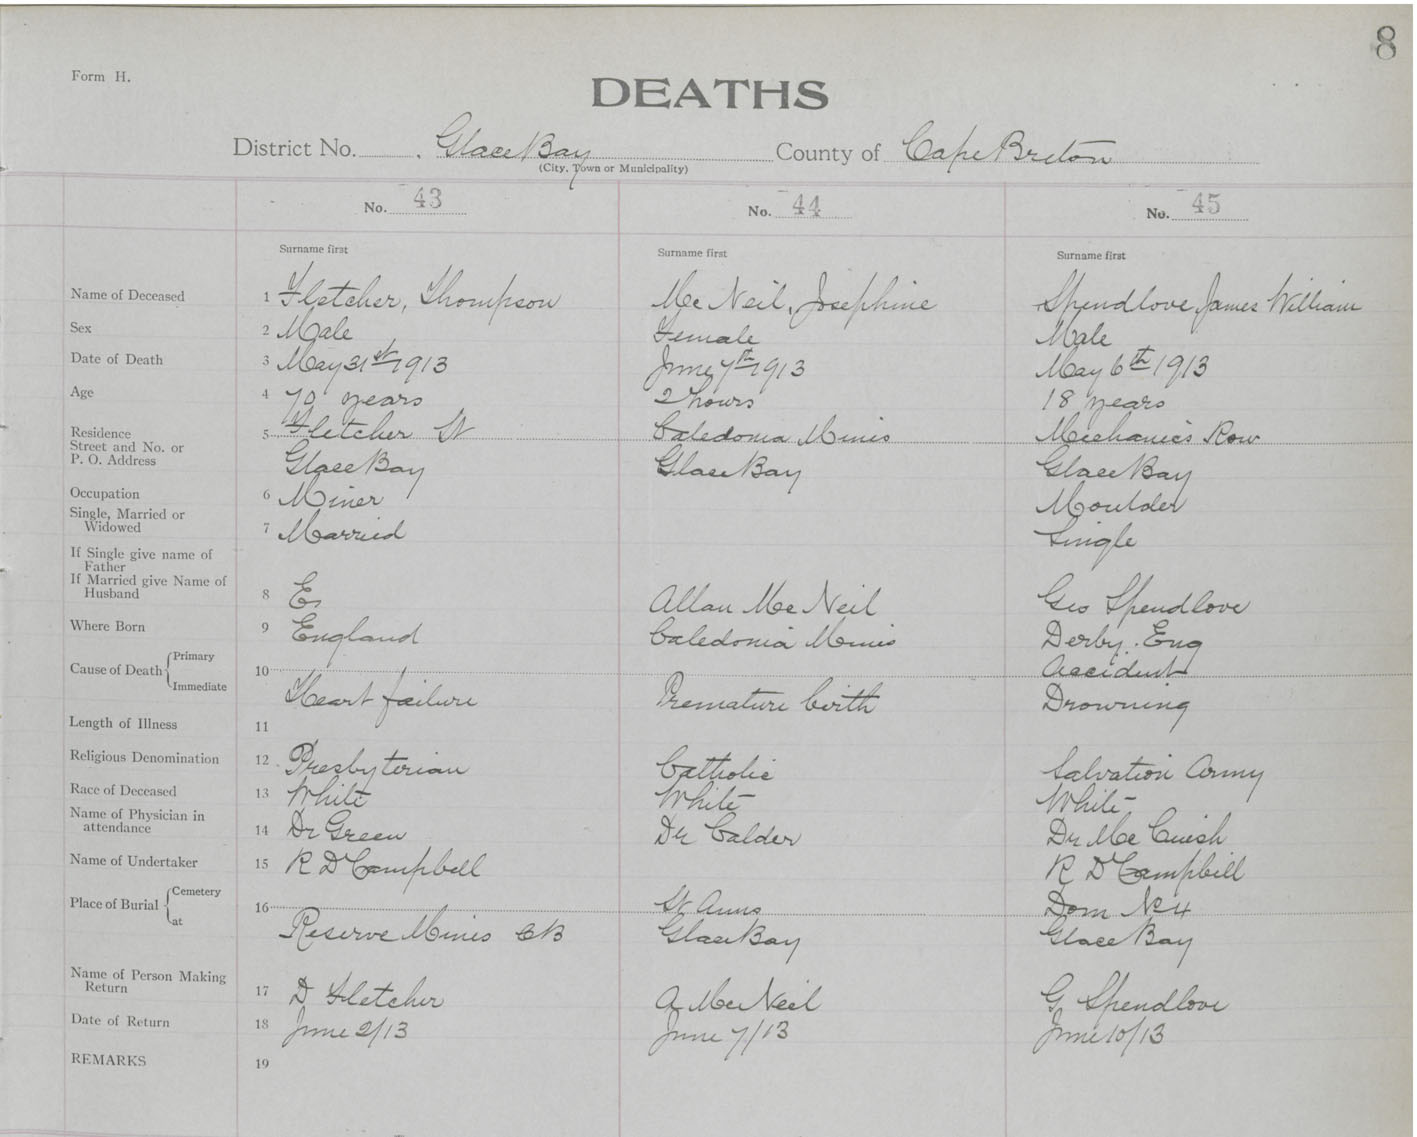 8
Form H.
DEATHS
District No. Glace Bay County of Cape Breton
(City, Town or Municipality)
No. 43 No. 44 No. 45
Surname first Surname first Surname first
Name of Deceased 1 Fletcher, Thompson Mc Neil, Josephine Spendlove, James William
Sex 2 Male Female Male
Date of Death 3 May 31st 1913 June 7th 1913 May 6th 1913
Age 4 70 years 2 hours 18 years
Residence
Street and No. or
P. O. Address
5 Fletcher St Caledonia Mines Mechanics Row
Glace Bay Glace Bay Glace Bay
Occupation 6 Miner Moulder
Single, Married or
Widowed
7 Married Single
If Single give name of
Father
If Married give Name of
Husband
8 E Allan Mc Neil Geo Spendlove
Where Born 9 England Caledonia Mines Derby. Eng
Cause of Death Primary 10 Accident
Immediate Heart failure Premature birth Drowning
Length of Illness 11
Religious Denomination 12 Presbyterian Catholic Salvation Army
Race of Deceased 13 White White White
Name of Physician in
attendance
14 Dr Green Dr Calder Dr Mc Cuish
Name of Undertaker 15 R D Campbell R D Campbell
Place of Burial Cemetery 16 St Anns Dom No 4
at Reserve Mines CB Glace Bay Glace Bay
Name of Person Making
Return
17 D Fletcher A Mc Neil G Spendlove
Date of Return 18 June 2/13 June 7/13 June 10/13
REMARKS 19